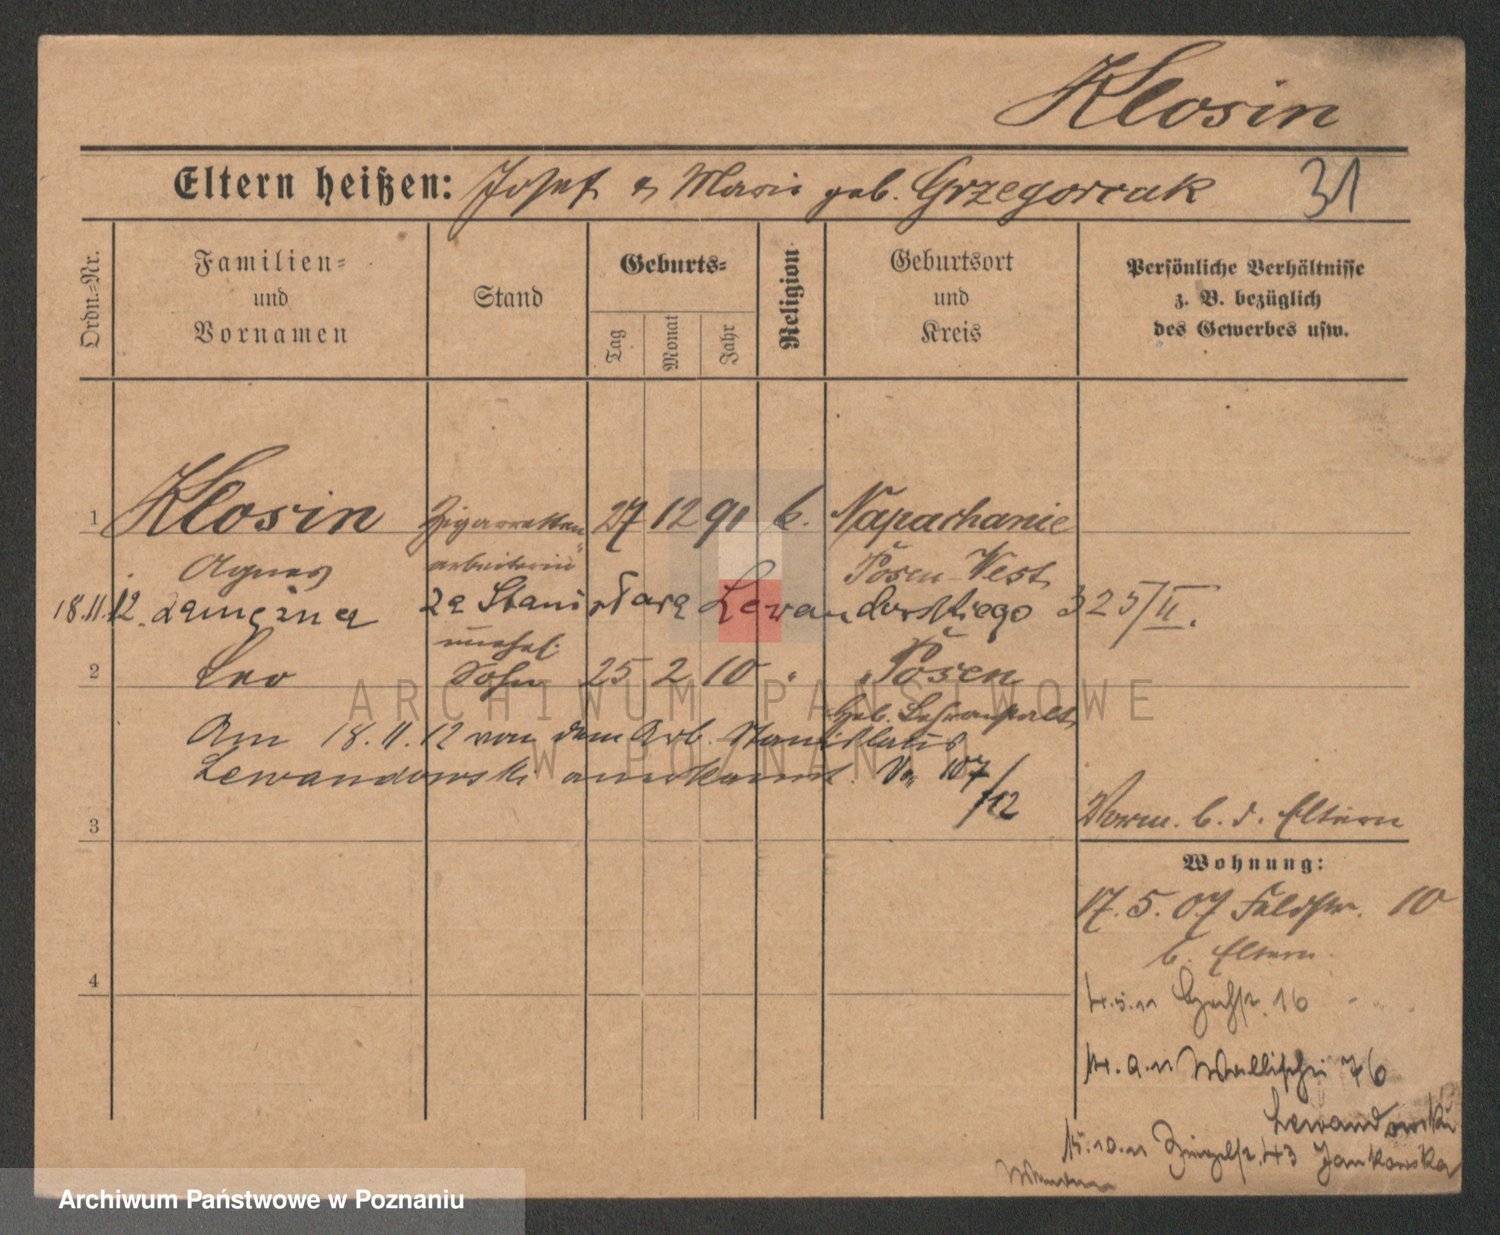 Klosin
Eltern heißen: Josef & Marie geb. Grzegorczak 31
Ordn.-Nr.
Familien- und Vornamen
Stand
Geburts-
Tag Monat Jahr
Religion
Geburtsort und Kreis
Persönliche Verhältnisse z. B. bezüglich des Gewerbes usw.
1 Klosin Zigaretten 27 12 91 k. Napachanie
Agnes arbeiterin Posen-West
18.11.12. zamężna za Stanisława Lewandowskiego 325/II.
unehel.
2 Leo Sohn 25 2 10 " Posen
Heb. Lehranstalt
Am 18.11.12 von dem Arb. Stanislaus
Lewandowski anerkannt. V. 107/12
3 Verm. b. d. Eltern
Wohnung:
17.5.07 Feldstr. 10
b. Eltern
4
16
Wallischei 76
Lewandowski
15.10.11 43 Jankowska
ARCHIWUM PAŃSTWOWE
W POZNANIU
Archiwum Państwowe w Poznaniu